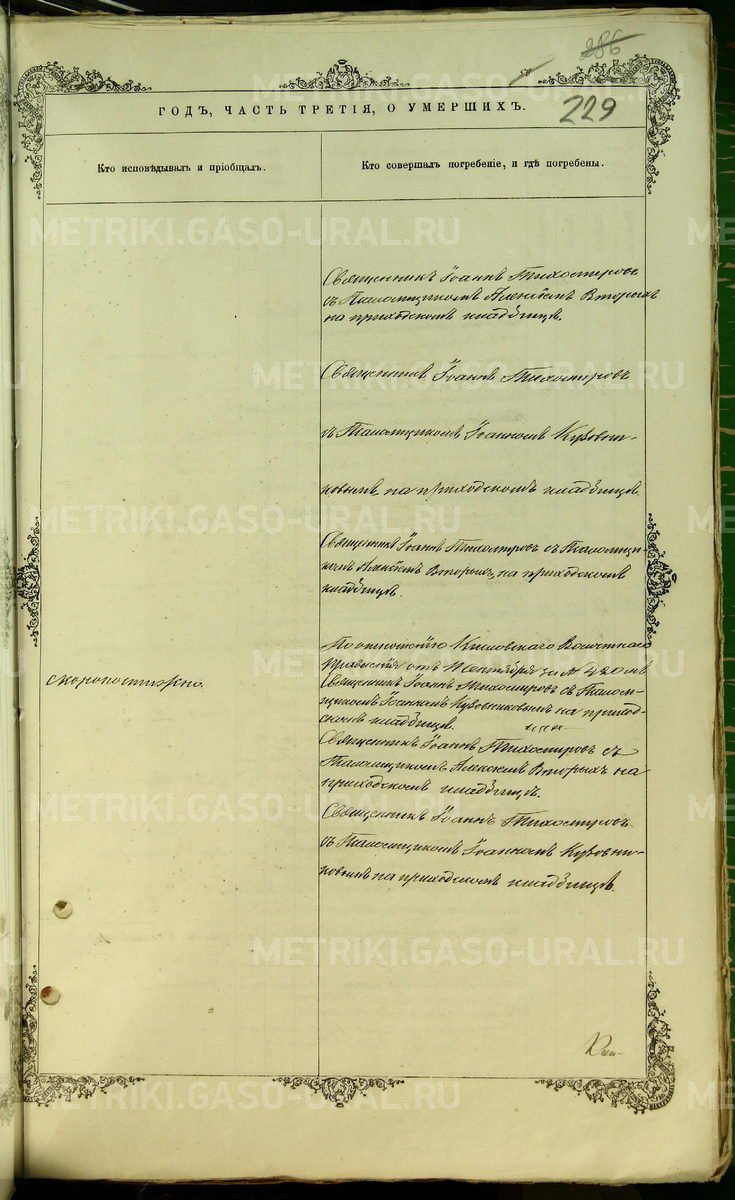 286
229
ГОДЪ, ЧАСТЬ ТРЕТІЯ, О УМЕРШИХЪ.
Кто исповѣдывалъ и пріобщалъ.
Кто совершалъ погребеніе, и гдѣ погребены.
Священникъ Іоаннъ Тихомировъ
съ Псаломщикомъ Алексѣемъ Вторыхъ
на приходскомъ кладбищѣ.
Священникъ Іоаннъ Тихомировъ
съ Псаломщикомъ Іоанномъ Кузовни-
ковымъ на приходскомъ кладбищѣ.
Священникъ Іоаннъ Тихомировъ съ Псаломщи-
комъ Алексѣемъ Вторыхъ на приходскомъ
кладбищѣ.
скоропостижно.
По отношенію Волостнаго
Правленія отъ Сентября за №
Священникъ Іоаннъ Тихомировъ съ Псалом-
щикомъ Іоанномъ Кузовниковымъ на приход-
скомъ кладбищѣ.
Священникъ Іоаннъ Тихомировъ съ
Псаломщикомъ Алексѣемъ Вторыхъ на
приходскомъ кладбищѣ.
Священникъ Іоаннъ Тихомировъ
съ Псаломщикомъ Іоанномъ Кузовни-
ковымъ на приходскомъ кладбищѣ.
METRIKI.GASO-URAL.RU